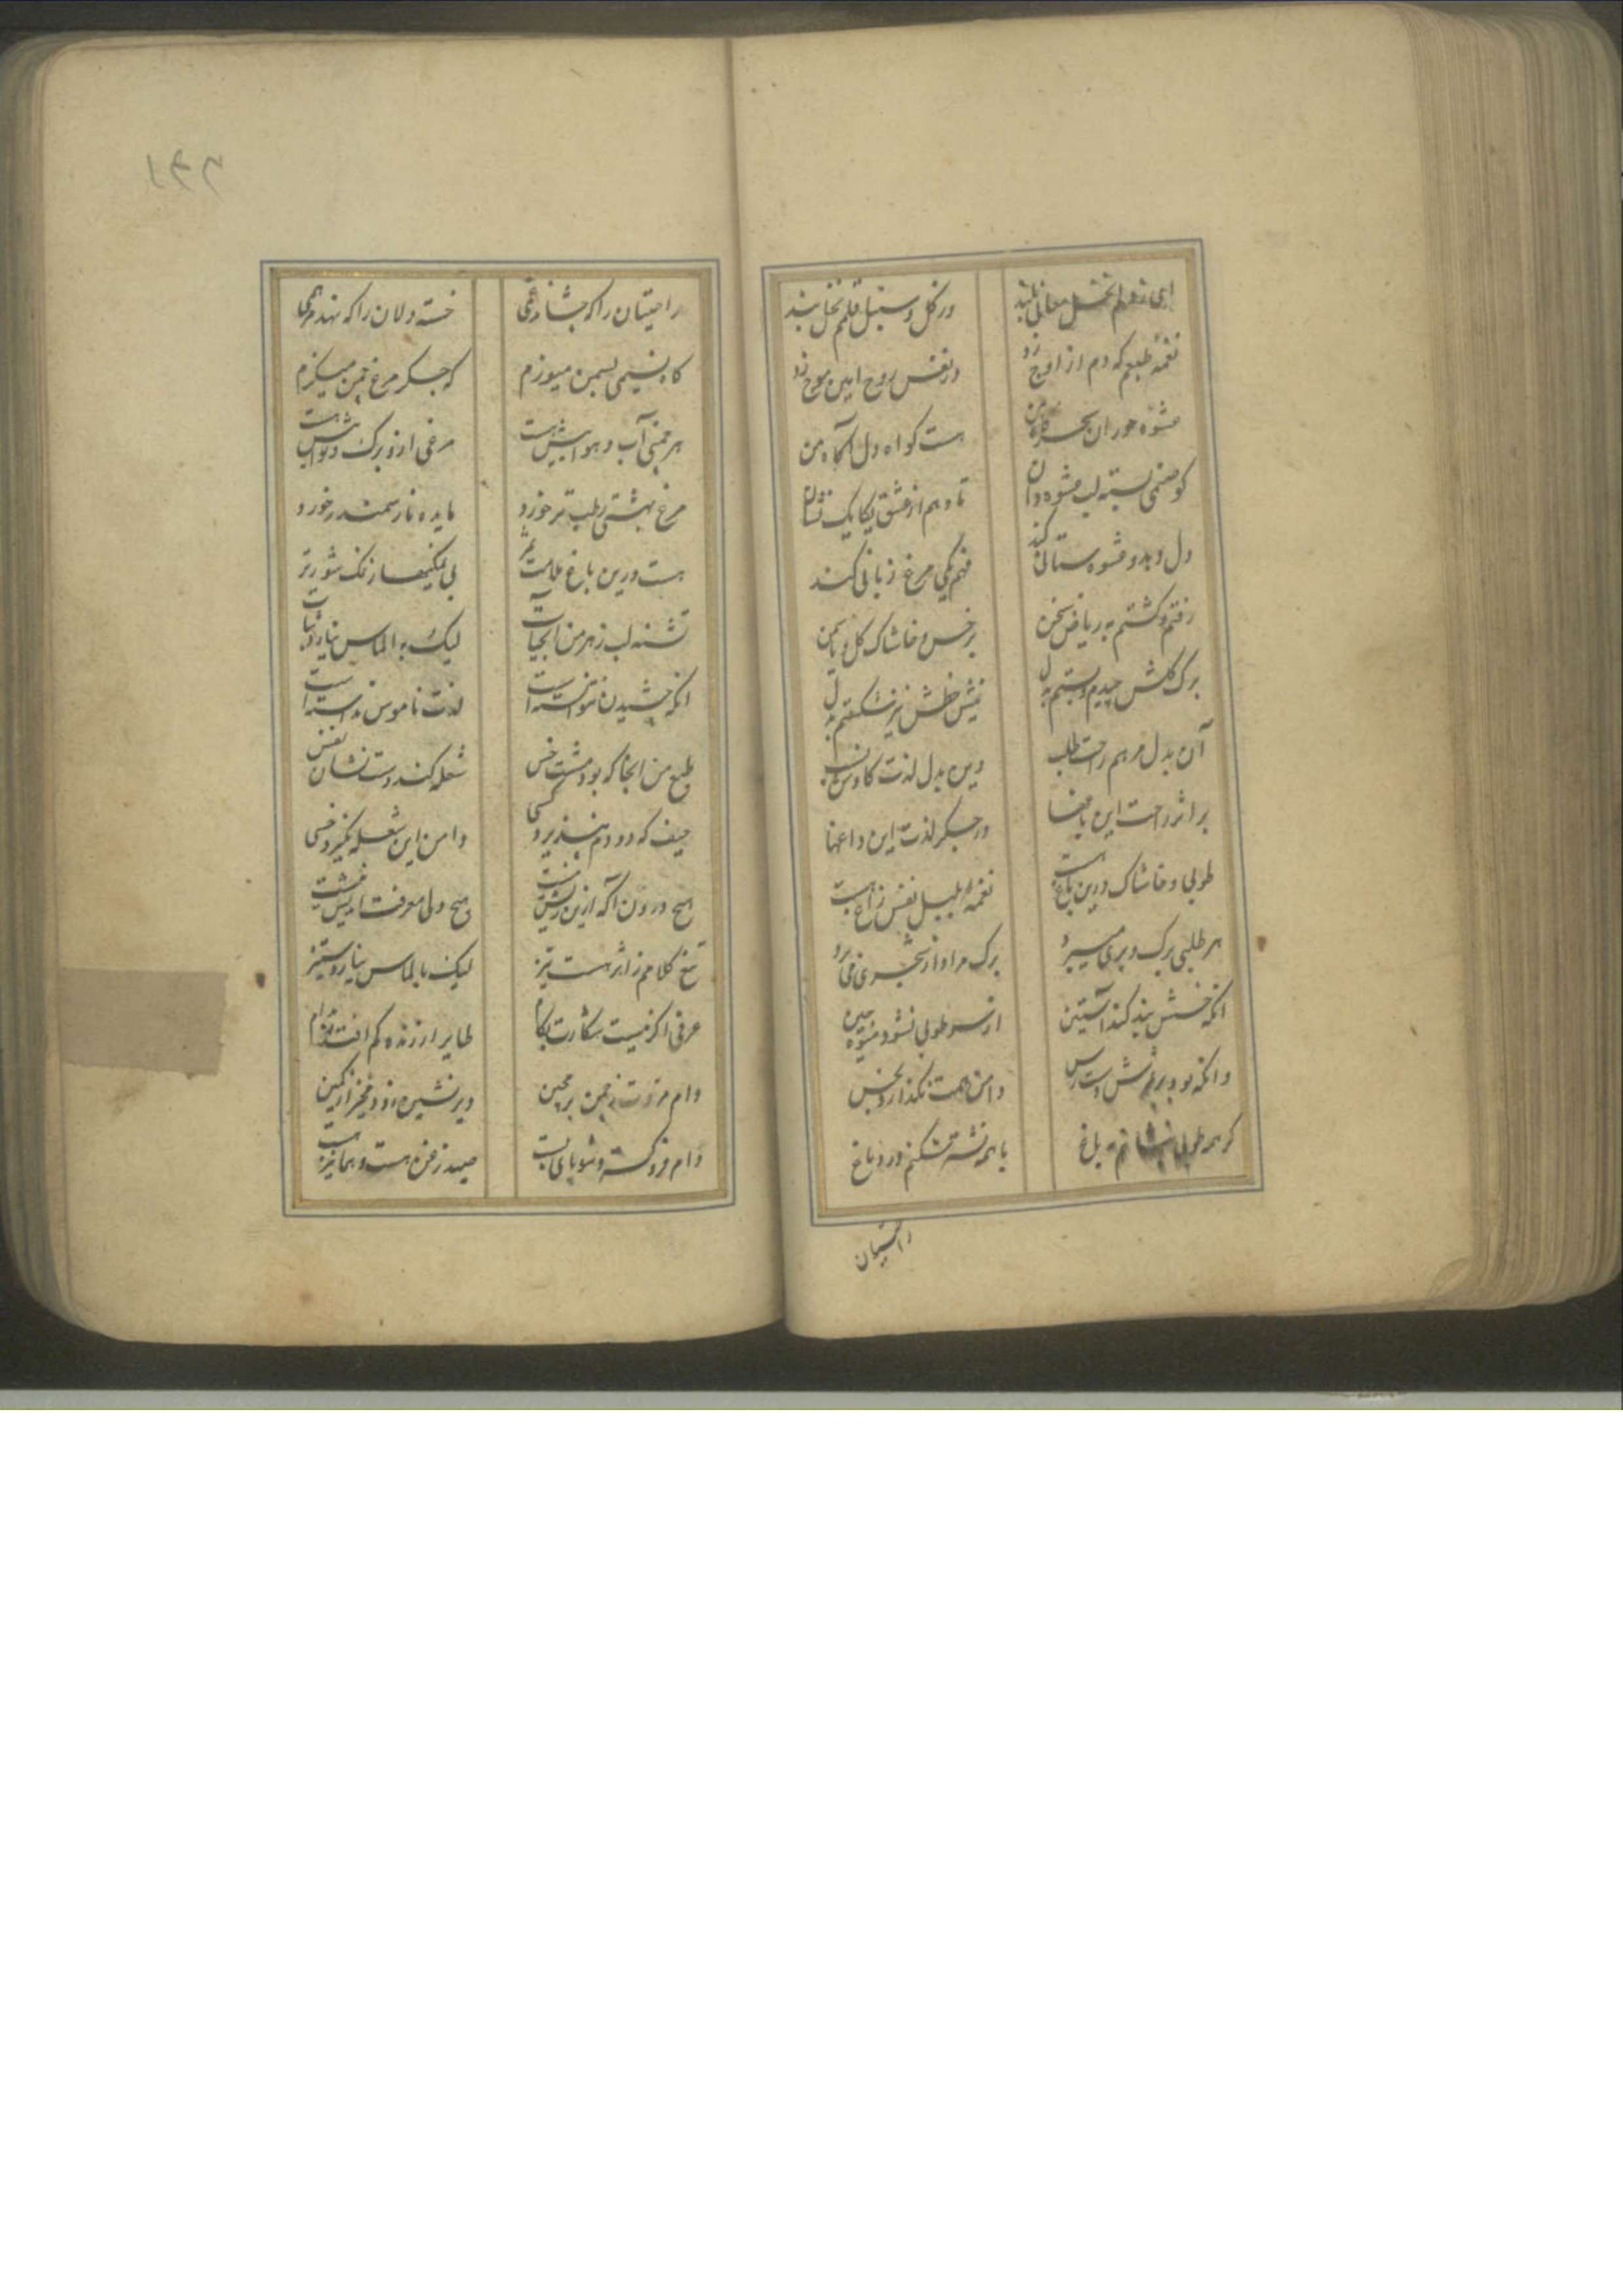 ای ز قلم نخل معانی بلند ورکل و سنبل قلمم نخل بند
نغمهٔ طبعم که دم از اوج زد در نفس روح امین موج زد
عشوه حوران بسحرگاه من هست کواه دل آکاه من
کو صنمی بسته لب عشوه دان تا دهم از عشق یکایک نشان
دل دهد و عشوه ستانی کند فهم یکی مرغ زبانی کند
رفتم و کشتم به ریاض سخن بر خس و خاشاک کل و یاسمن
برک کلش چیدم و بستم به دل نیش خسش نیز شکستم به دل
آن بدل مرهم راحت طلب وین بدل لذت کاوش
بر اثر راحت این باغها در جکر لذت این داغها
طوبی و خاشاک درین باغ هست نغمهٔ بلبل نفس زاغ هست
هر طلبی برک و بری میبرد برک مراد از شجری می برد
انکه خسش بند کند آستین از سر طوبی نشود میوه چین
وانکه بود بر ثمرش دست رس دامن همت نکذارد بخس
کر همه طوبی بنشانم به باغ با همه نشتر شکنم در دماغ
راحتیان
راحتیان را که چشاند غمی خسته دلان را که نهد مرهمی
کاه نسیمی بسمن میوزم که جکر مرغ چمن میکزم
هر چمنی آب و هوائیش هست مرغی ازو برک و نوائیش هست
مرغ بهشتی رطب تر خورد مایده نار سمندر خورد
هست درین باغ ملامت ثمر بی نمکیها ز نمک شورتر
تشنه لب زهر من آبحیات لیک به الماس نیارد ثبات
انکه چشیدن نتوانسته است لذت ناموس ندانسته است
طبع من انجا که بود مشت خس شعله کند دست نشان نفس
حیف که دود دم نپذیرد کسی دامن این شعله نکیرد خسی
هیچ درون آکه ازین ریش نیست هیچ ولی معرفت اندیش نیست
تیغ کلامم ز اثر هست تیز لیک بالماس نیارد ستیز
عرفی اکر نیست شکارت بکام طایر ارزنده کم افتد بدام
دام مروت ز چمن برمچین دیر نشین و زود مخیز از کمین
دام فرو کسته و شو پای بست صید زغن هست و هما نیز هست